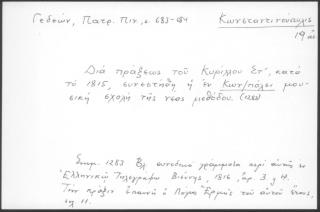 Γεδεών, Πατρ. Πιν., σ. 683-684
Κωνσταντινούπολις
19 αἰ.
Διὰ πράξεως τοῦ Κυρίλλου Στʹ, κατὰ
τὸ 1815, συνεστήθη ἡ ἐν Κων/πόλει μου-
σικὴ σχολὴ τῆς νέας μεθόδου. (1283)
Σημ. 1283 Βλ συνοδικὰ γράμματα περὶ αὐτῆς ἐν
Ἑλληνικῷ Τηλεγράφῳ Βιέννης, 1816, ἀρ. 3 4.
Τὴν πρᾶξιν ἐπαινεῖ ὁ Λόγιος Ἑρμῆς τοῦ αὐτοῦ ἔτους,
σελ 11.